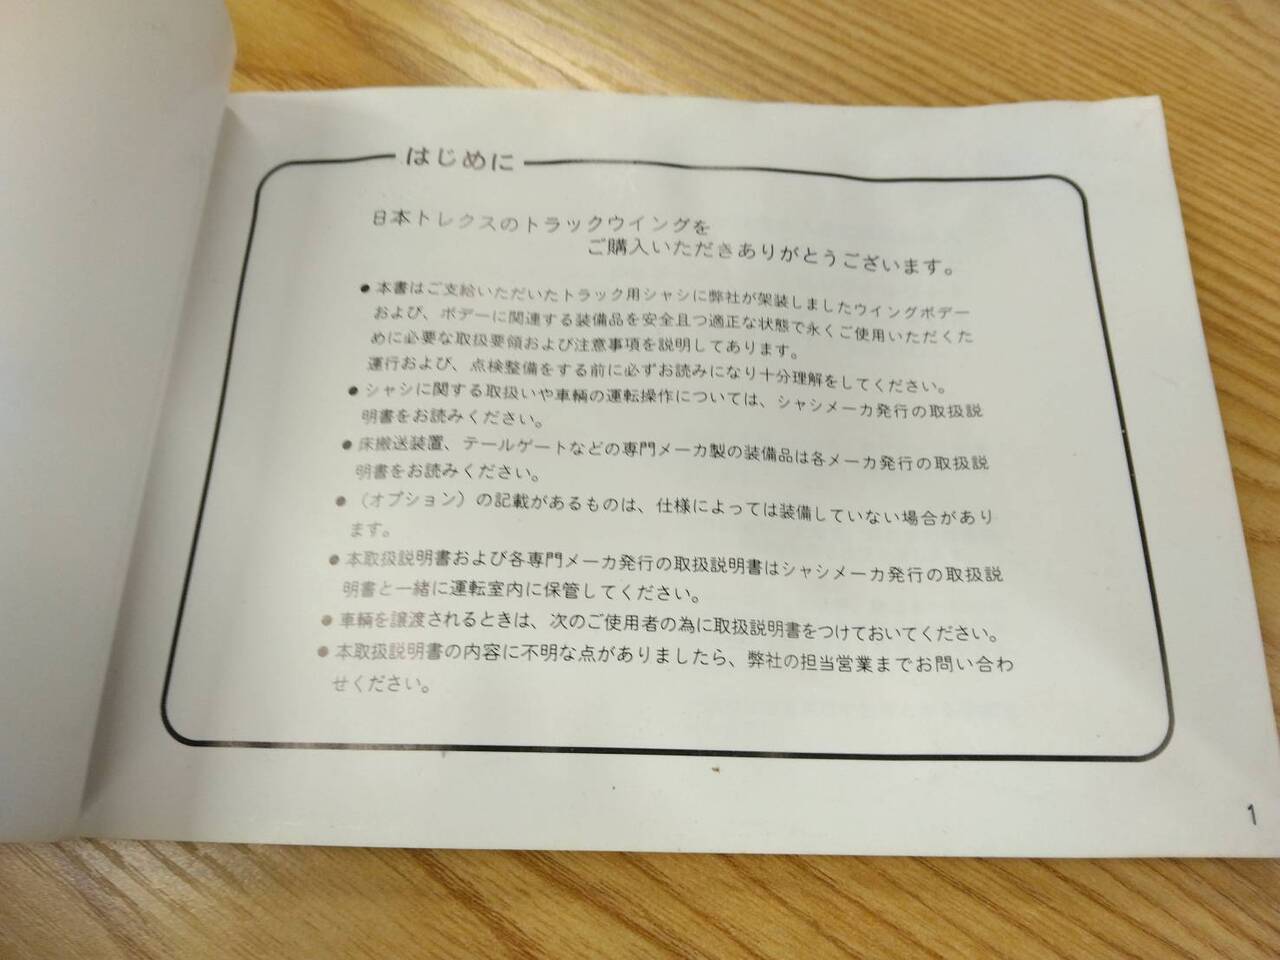 はじめに
日本トレクスのトラックウイングを
ご購入いただきありがとうございます。
● 本書はご支給いただいたトラック用シャシに弊社が架装しましたウイングボデー
および、ボデーに関連する装備品を安全且つ適正な状態で永くご使用いただくた
めに必要な取扱要領および注意事項を説明してあります。
運行および、点検整備をする前に必ずお読みになり十分理解をしてください。
● シャシに関する取扱いや車輌の運転操作については、シャシメーカ発行の取扱説
明書をお読みください。
● 床搬送装置、テールゲートなどの専門メーカ製の装備品は各メーカ発行の取扱説
明書をお読みください。
● （オプション）の記載があるものは、仕様によっては装備していない場合があり
ます。
● 本取扱説明書および各専門メーカ発行の取扱説明書はシャシメーカ発行の取扱説
明書と一緒に運転室内に保管してください。
● 車輌を譲渡されるときは、次のご使用者の為に取扱説明書をつけておいてください。
● 本取扱説明書の内容に不明な点がありましたら、弊社の担当営業までお問い合わ
せください。
1